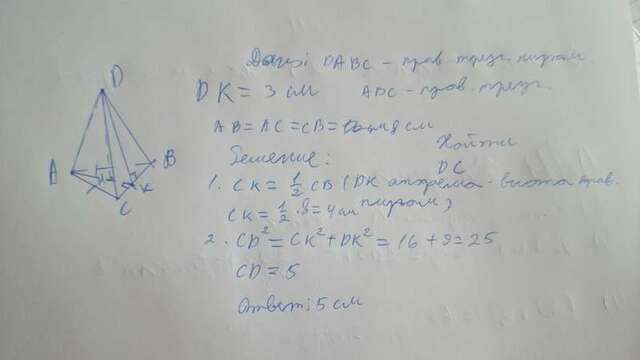 Дано: DABC – прав. треуг. пирам.
DK = 3 см ABC – прав. треуг.
AB = AC = CB = 8 см
Найти
DC
Решение:
1. CK = 1/2 CB (DK апофема - высота прав. пирам.)
CK = 1/2 · 8 = 4 см
2. CD² = CK² + DK² = 16 + 9 = 25
CD = 5
Ответ: 5 см
D
A
B
C
K